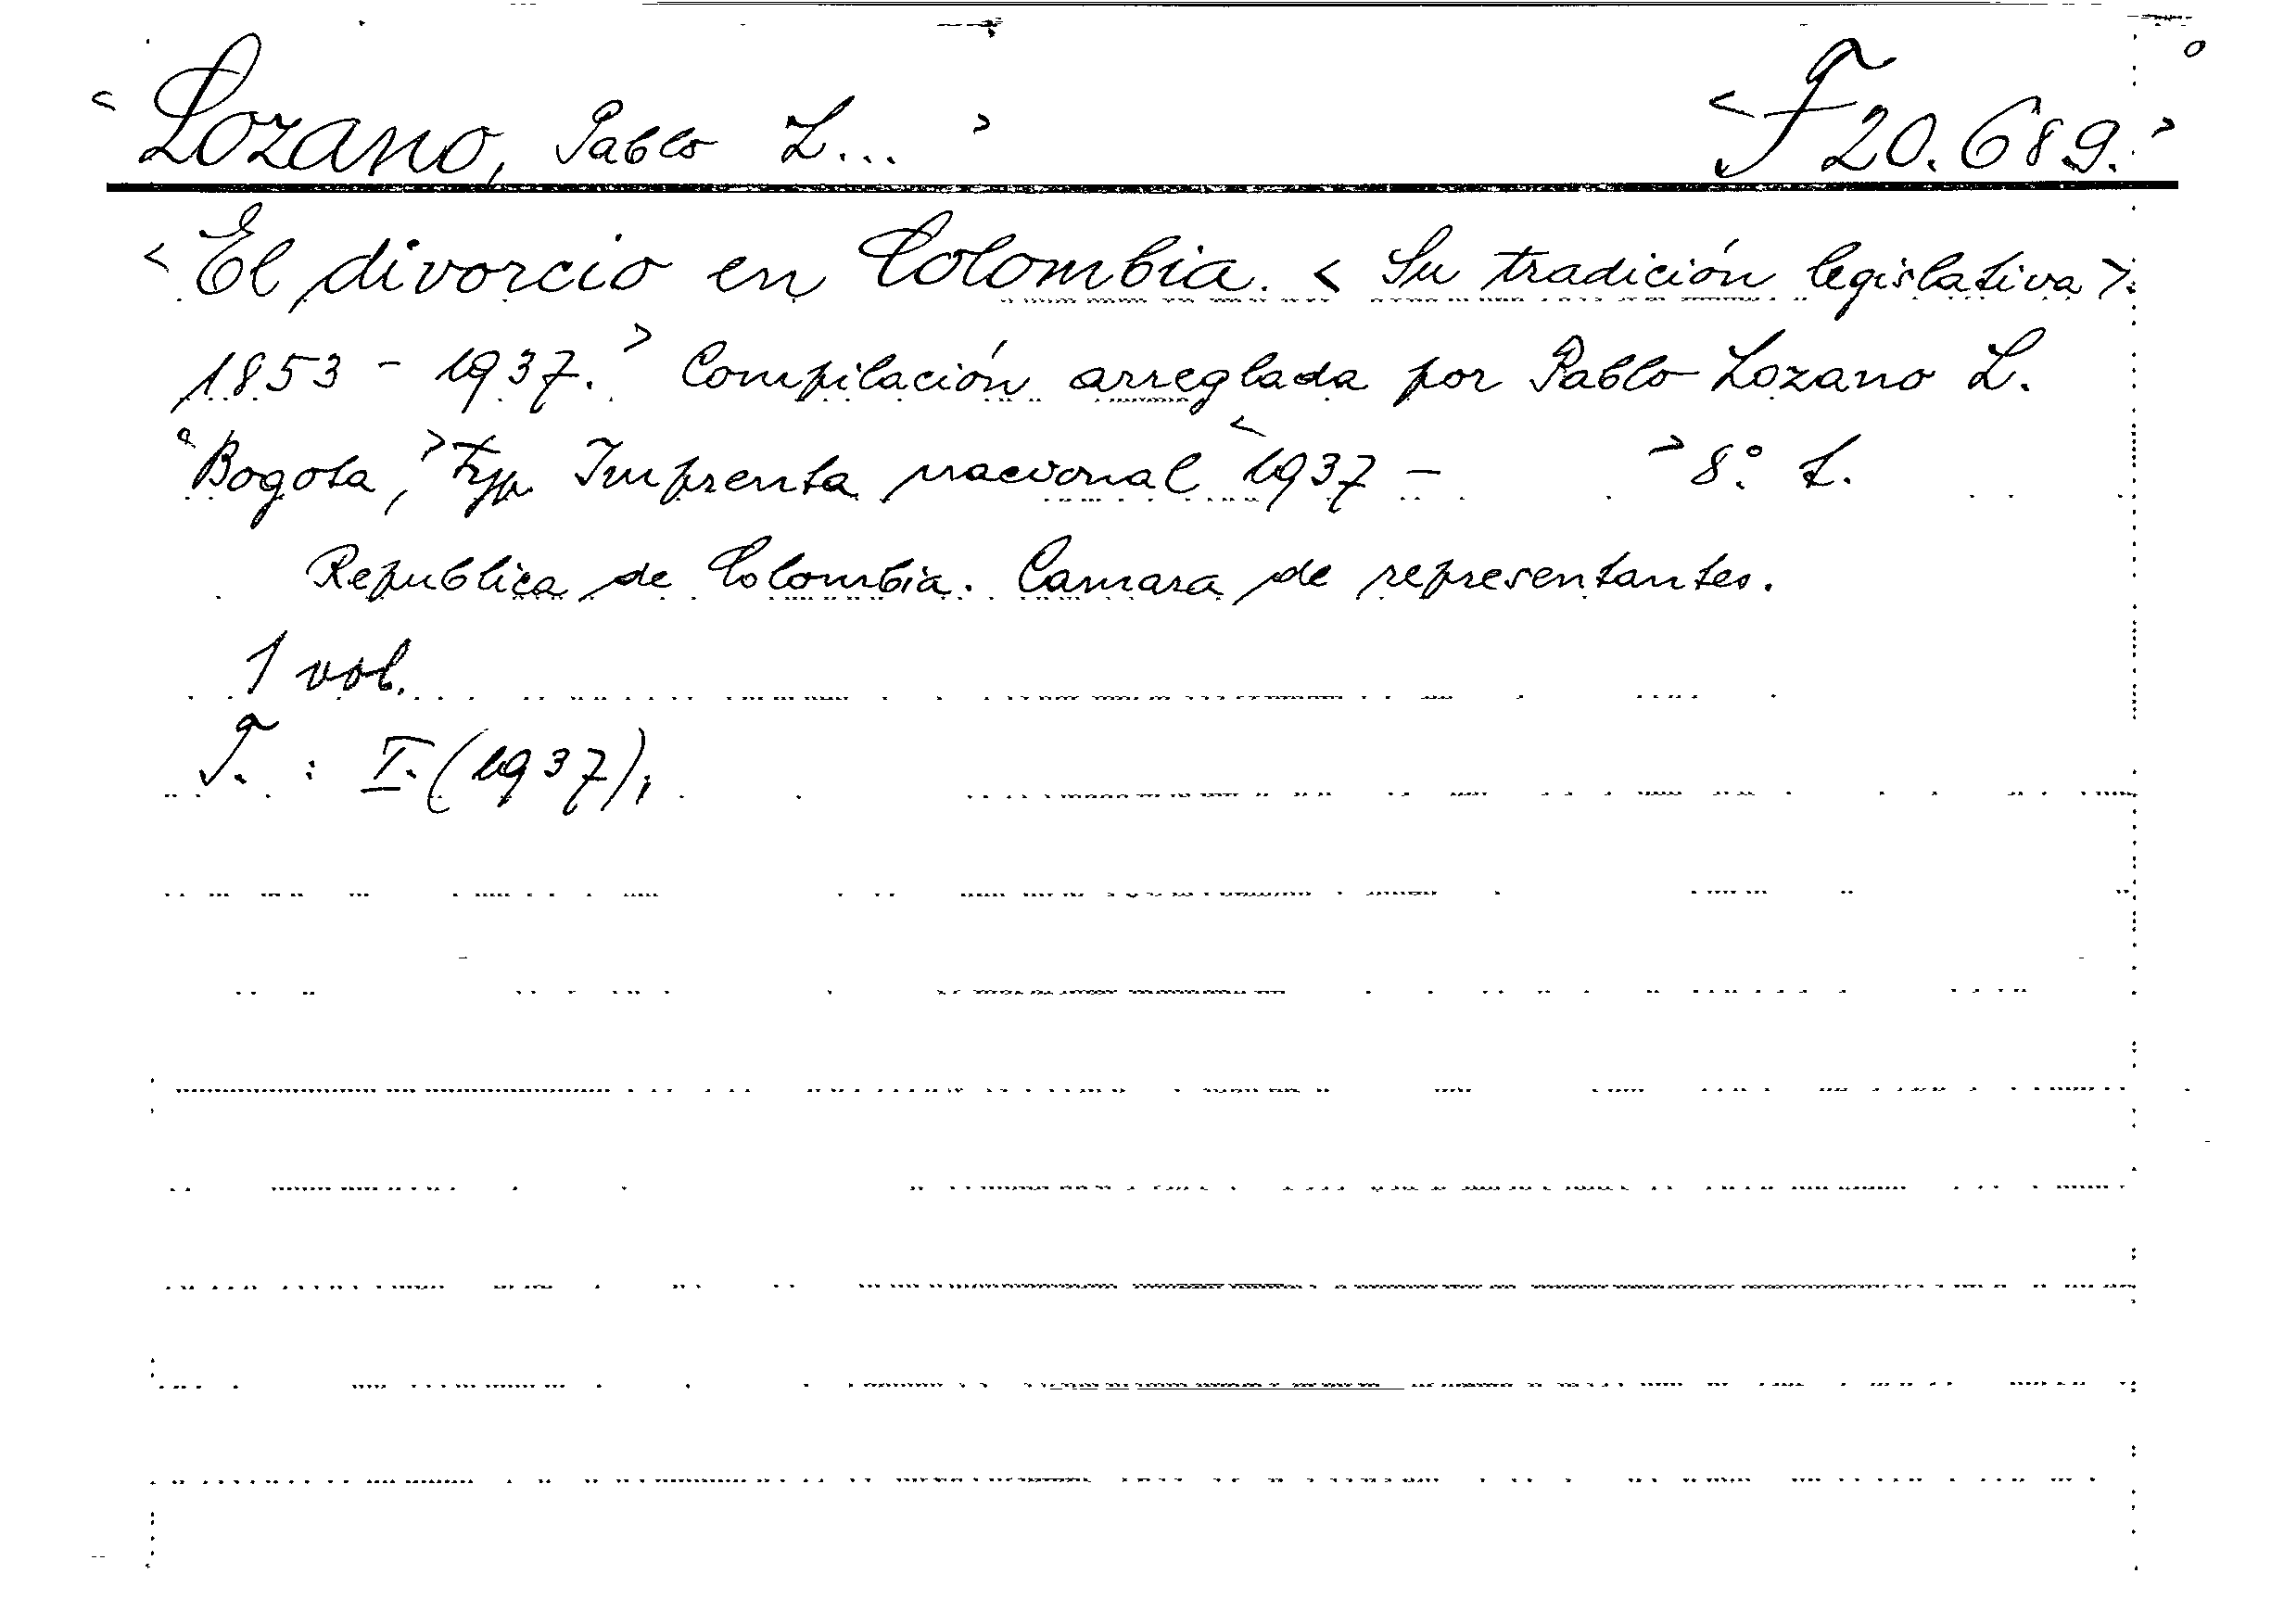 < Lozano, Pablo L... > < F 20.689. >
< El divorcio en Colombia. < Su tradición legislativa >.
1853 - 1937. > Compilación arreglada por Pablo Lozano L.
< Bogota, > Typ. Imprenta nacional < 1937 - > 8º. L.
Republica de Colombia. Camara de representantes.
1 vol.
T. : I. (1937),